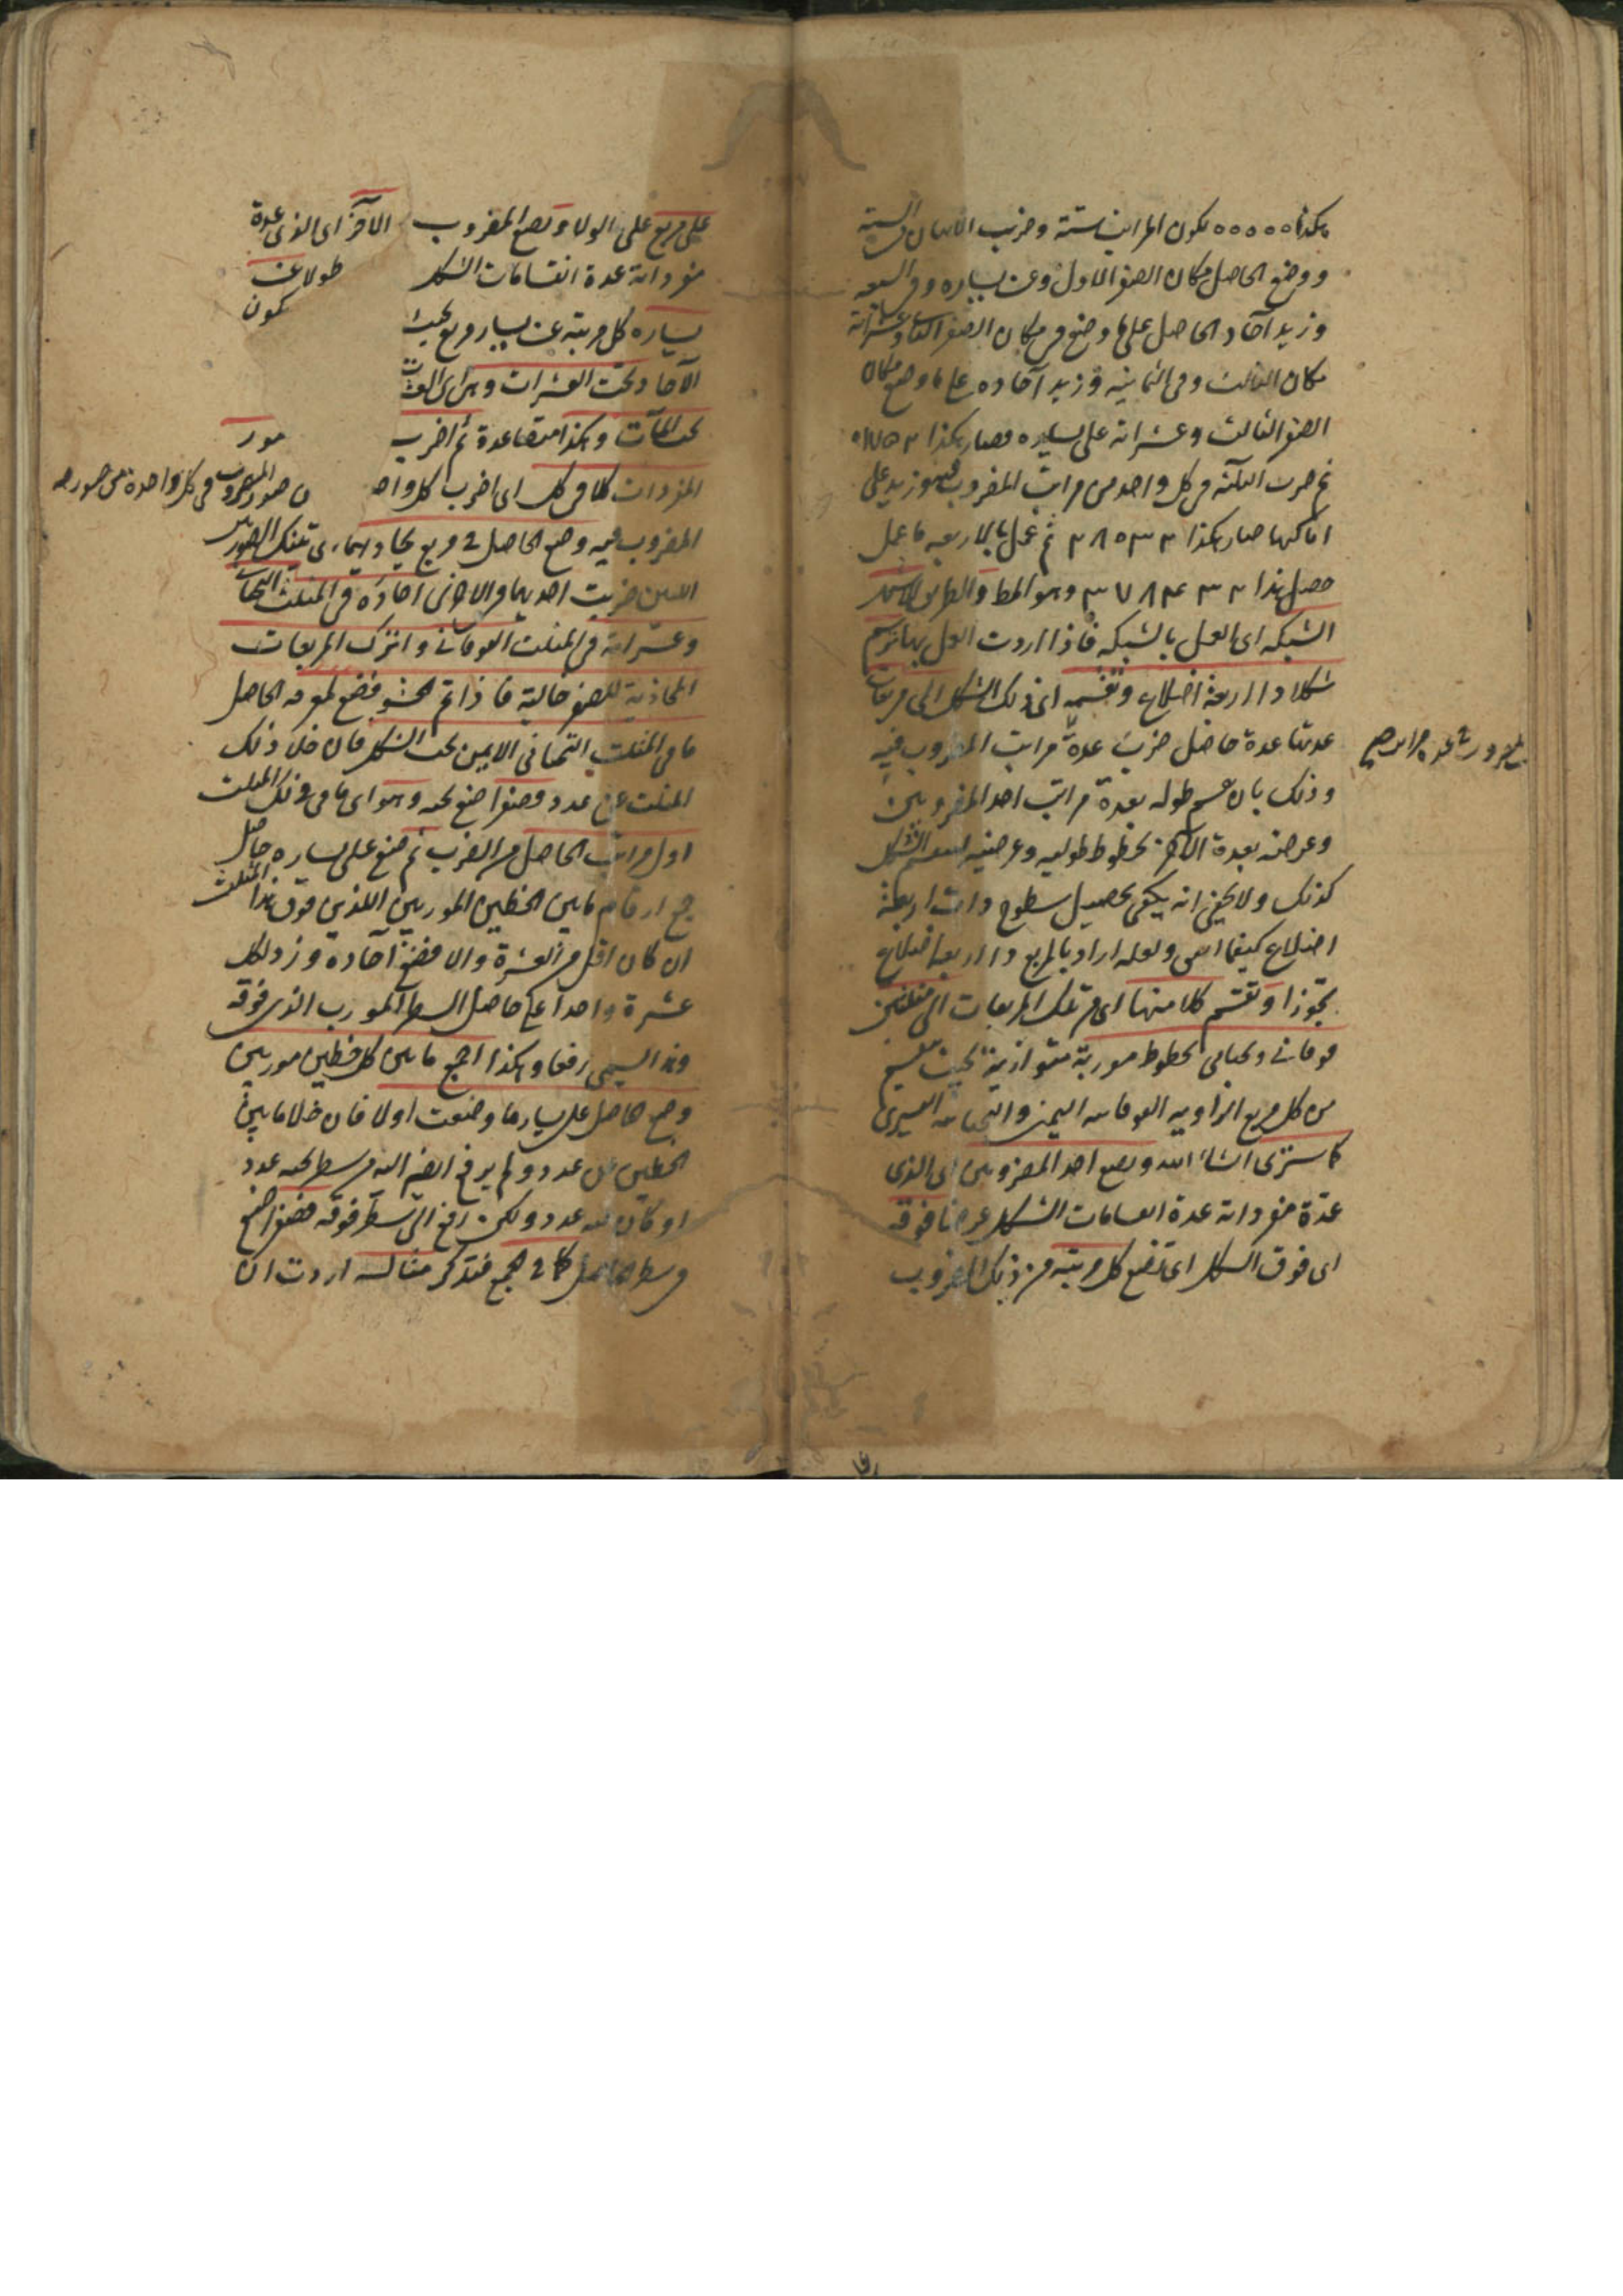 هكذا ٠٠٠٠٠ يكون المراتب ستة وضرب الاثنان في الستة
ووضع الحاصل مكان الصفر الاول وعن يساره وفي السبعة
وزيد آحاد الحاصل على ما وضع في مكان الصفر الثاني وعشراته
مكان الثالث وفي الثمانية وزيد آحاده على ما وضع مكان
الصفر الثالث وعشراته على يساره فصار هكذا
ثم ضرب الثلثة في كل واحد من مراتب المضروب فيه وزيد على
اماكنها صار هكذا ثم عمل بالاربعة ما عمل
حصل هذا وهو المط والطريق الاسهل
الشبكة اى العمل بالشبكة فاذا اردت العمل بها ترسم
شكلا ذا اربعة اضلاع وتقسمه اى ذلك الشكل الى مربعات
عدتها عدة حاصل ضرب عدة مراتب المضروب فيه
وذلك بان يقسم طوله بعدة مراتب احد المضروبين
وعرضه بعدة الآخر بخطوط طولية وعرضية لينقسم الشكل
كذلك ولا يخفى انه يكفى تحصيل سطوح ذات اربعة
اضلاع كيفما اتفق ولعله اراد بالمربع ذا اربعة اضلاع
تجوزا وتقسم كلا منها اى من تلك المربعات الى مثلثين
فوقانى وتحتانى بخطوط موربة متوازية بحيث تقسم
من كل مربع الزاوية الفوقانية اليمنى والتحتانية اليسرى
كما سترى انشاء الله وتضع احد المضروبين اى الذى
عدة مفرداته عدة انقسامات الشكل عرضا فوقه
اى فوق الشكل اى تضع كل مرتبة من ذلك المضروب
على مربع على الولاء وتضع المضروب الآخر اى الذى عدة
مفرداته عدة انقسامات الشكل طولا عن
يساره كل مرتبة عن يسار مربع بحيث يكون
الآحاد تحت العشرات وهى اى العشرات
تحت المآت وهكذا متصاعدة ثم اضرب
المفردات كلا فى كل اى اضرب كل واحد من صور المضروب فى كل واحدة من صور
المضروب فيه وضع الحاصل فى مربع يحاذيهما اى تينك الصورتين
اللتين ضربت احديهما فى الاخرى آحاده فى المثلث التحتانى
وعشراته فى المثلث الفوقانى واترك المربعات
المحاذية للصفر خالية فاذا تم الحشو فضع لمعرفة الحاصل
ما فى المثلث التحتانى الايمن تحت الشكل فان خلا ذلك
المثلث عن عدد فصفرا ضع تحته وهو اى ما فى ذلك المثلث
اول مراتب الحاصل من الضرب ثم ضع على يساره حاصل
جمع ارقام ما بين الخطين الموربين اللذين فوق هذا المثلث
ان كان اقل من العشرة والا فضع آحاده وزد لكل
عشرة واحدا على حاصل السطر المورب الذى فوقه
وهذا يسمى رفعا وهكذا اجمع ما بين كل خطين موربين
وضع الحاصل على يسار ما وضعت اولا فان خلا ما بين
الخطين عن عدد ولم يرفع ايضا اليه من سطر تحته عدد
او كان فيه عدد ولكن رفع الى سطر فوقه فصفرا ضع
فى سطر الحاصل كما فى الجمع فتذكر مثاله اردت ان